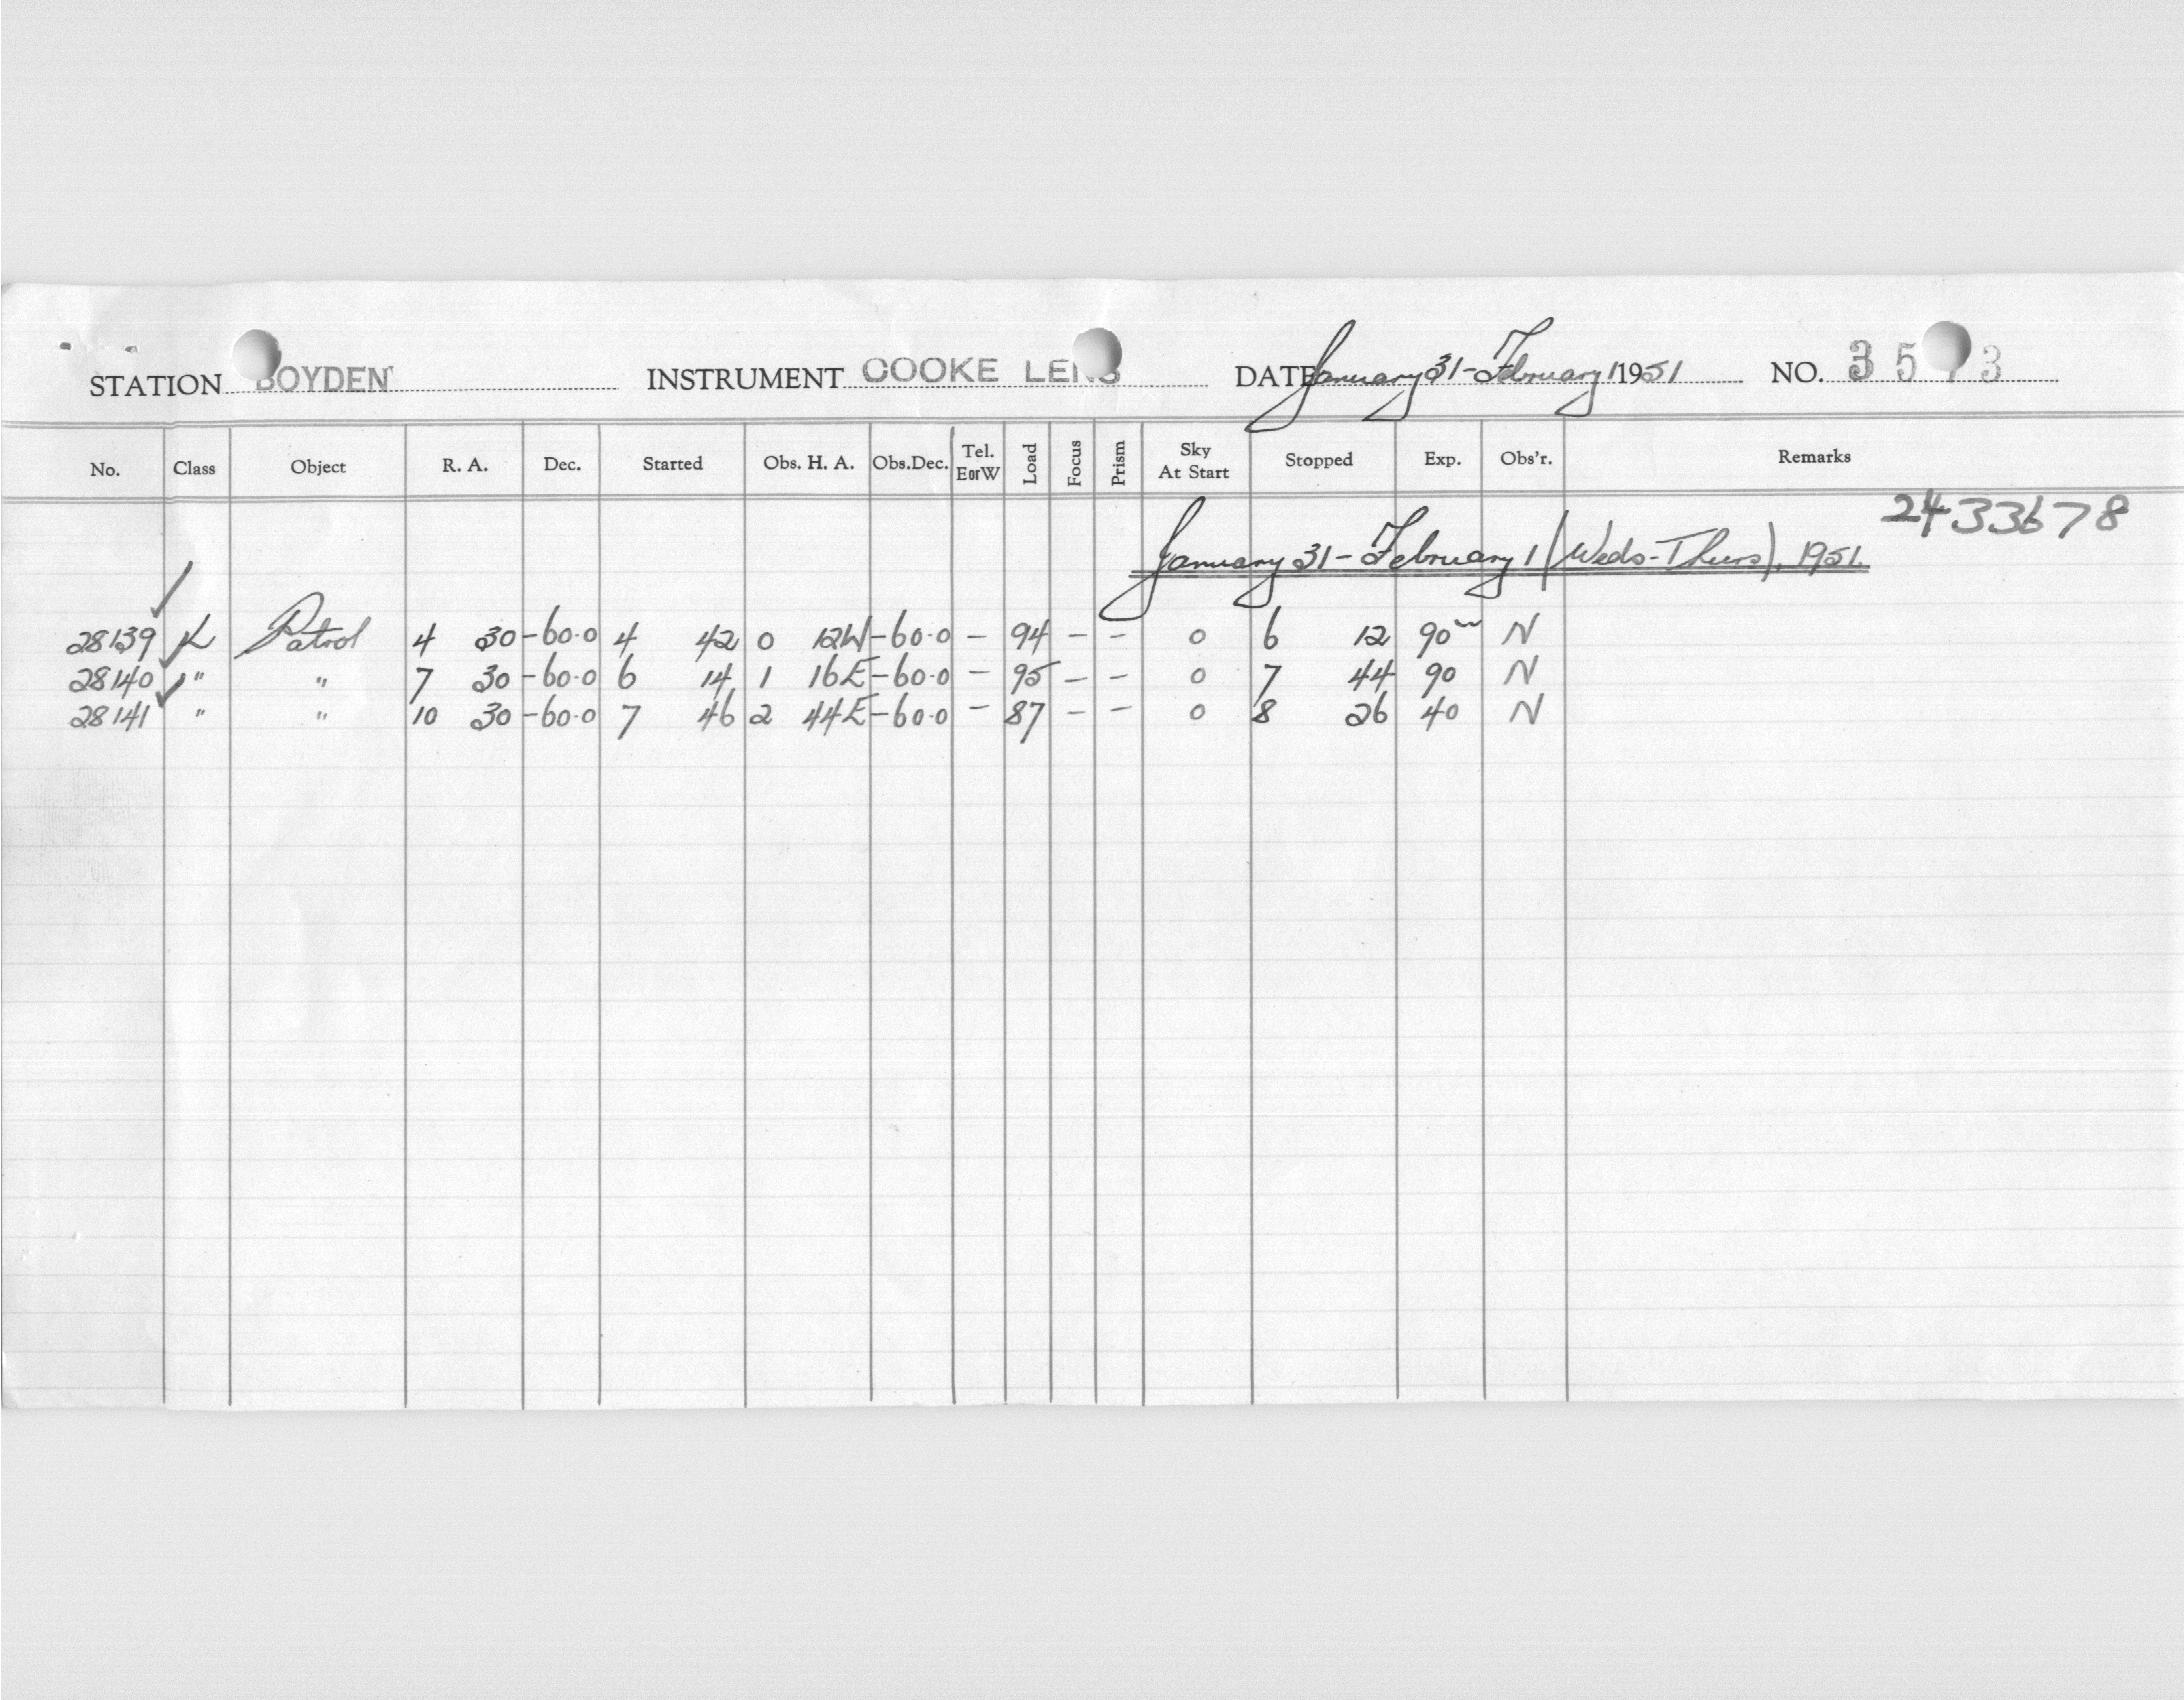 STATION BOYDEN INSTRUMENT COOKE LENS DATE January 31-February 1 1951 NO. 35 3
No. Class Object R. A. Dec. Started Obs. H. A. Obs.Dec. Tel. EorW Load Focus Prism Sky At Start Stopped Exp. Obs'r. Remarks
2433678
January 31-February 1 (Weds-Thurs), 1951.
28139 L Patrol 4 30 -60.0 4 42 0 12W -60.0 - 94 - - 0 6 12 90m N
28140 " " 7 30 -60.0 6 14 1 16E -60.0 - 95 - - 0 7 44 90 N
28141 " " 10 30 -60.0 7 46 2 44E -60.0 - 87 - - 0 8 26 40 N